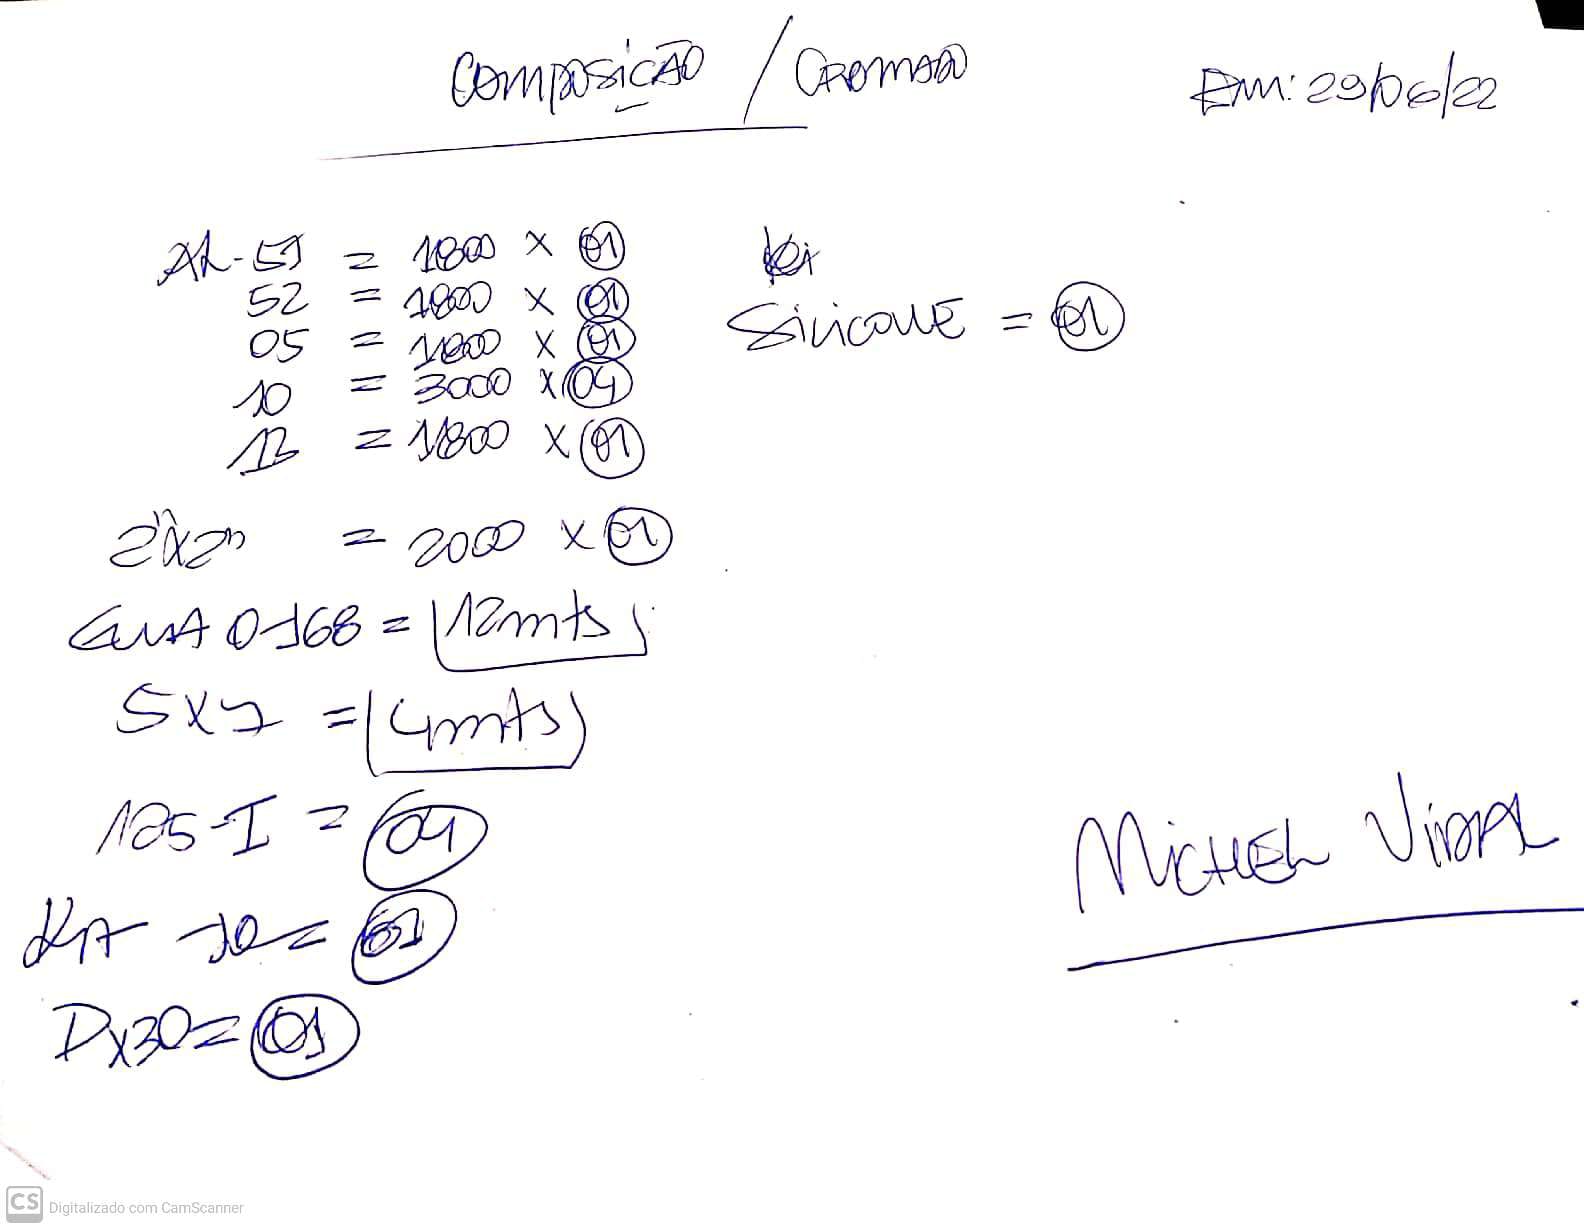 COMPOSIÇÃO / CROMADO
EM: 29/06/22
AL-51 = 1800 x 01
52 = 1800 x 01
05 = 1800 x 01
10 = 3000 x 04
13 = 1800 x 01
2"x2" = 2000 x 01
0-168 = 12mts
5x7 = 4mts
125-I = 04
= 01
Dx30 = 01
SILICONE = 01
MICHEL VIDAL
CS Digitalizado com CamScanner